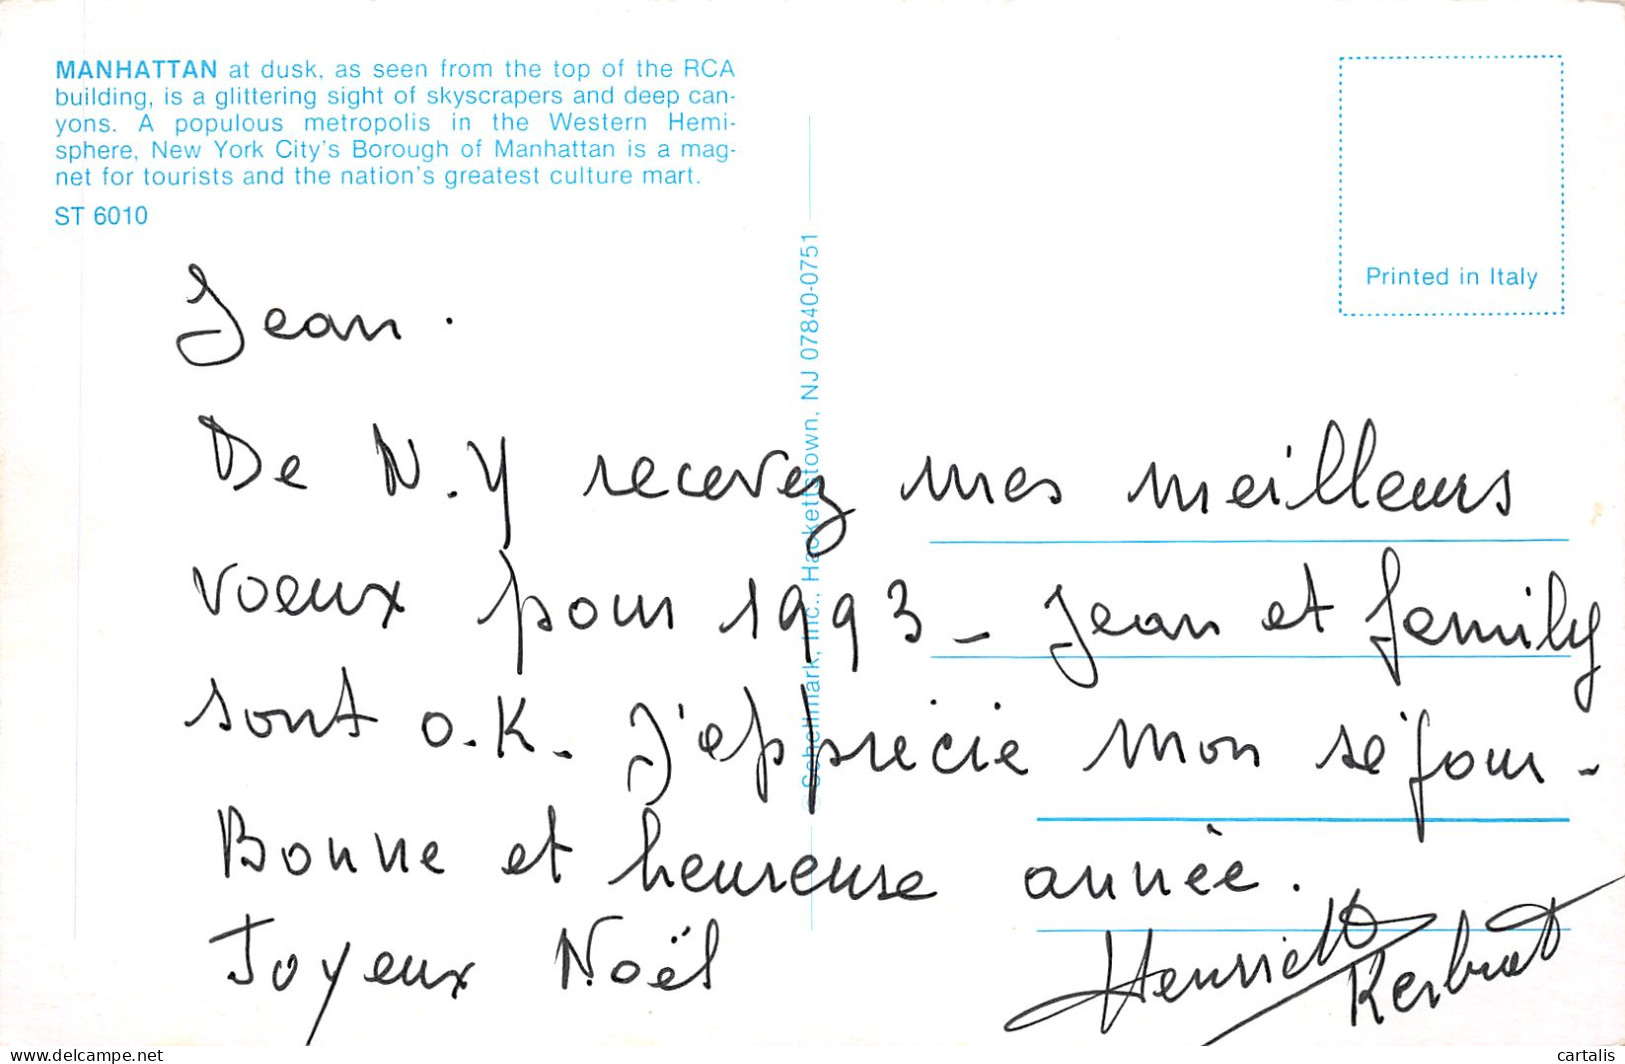 MANHATTAN at dusk, as seen from the top of the RCA
building, is a glittering sight of skyscrapers and deep can-
yons. A populous metropolis in the Western Hemi-
sphere, New York City's Borough of Manhattan is a mag-
net for tourists and the nation's greatest culture mart.
ST 6010
Printed in Italy
© Schellmark, Inc., Hackettstown, NJ 07840-0751
Jean.
De N.Y recevez mes meilleurs
voeux pour 1993 - Jean et family
sont O.K. J'apprécie mon séjour -
Bonne et heureuse année.
Joyeux Noël
Henriette
cartalis
www.delcampe.net